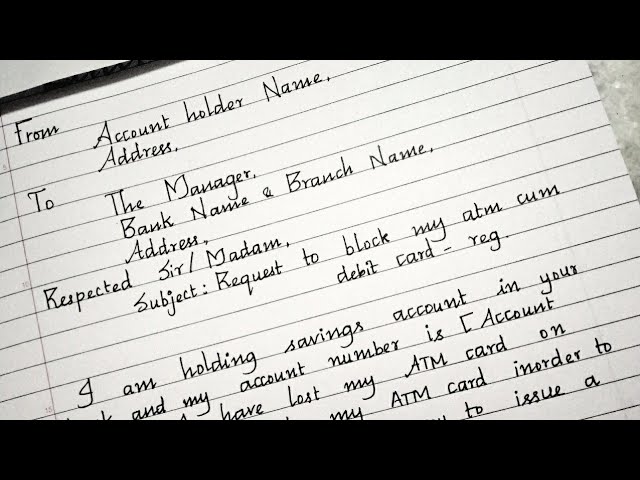 From Account holder Name,
Address,
To The Manager,
Bank Name & Branch Name,
Address,
Respected Sir/Madam,
Subject: Request to block my atm cum
debit card - reg.
I am holding savings account in your
and my account number is [Account
have lost my ATM card on
my ATM card inorder to
to issue a